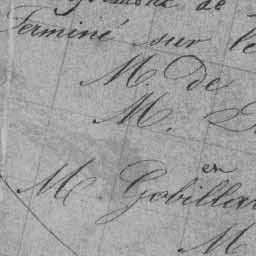 de
Terminé sur le
M. de
M.
en
M. Gobillar
M